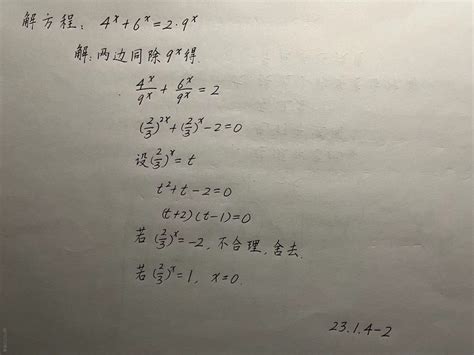 解方程: 4ˣ+6ˣ=2·9ˣ
解: 两边同除9ˣ得.
4ˣ/9ˣ + 6ˣ/9ˣ = 2
(2/3)²ˣ+(2/3)ˣ-2=0
设(2/3)ˣ=t
t²+t-2=0
(t+2)(t-1)=0
若(2/3)ˣ=-2, 不合理, 舍去.
若(2/3)ˣ=1, x=0.
23.1.4-2